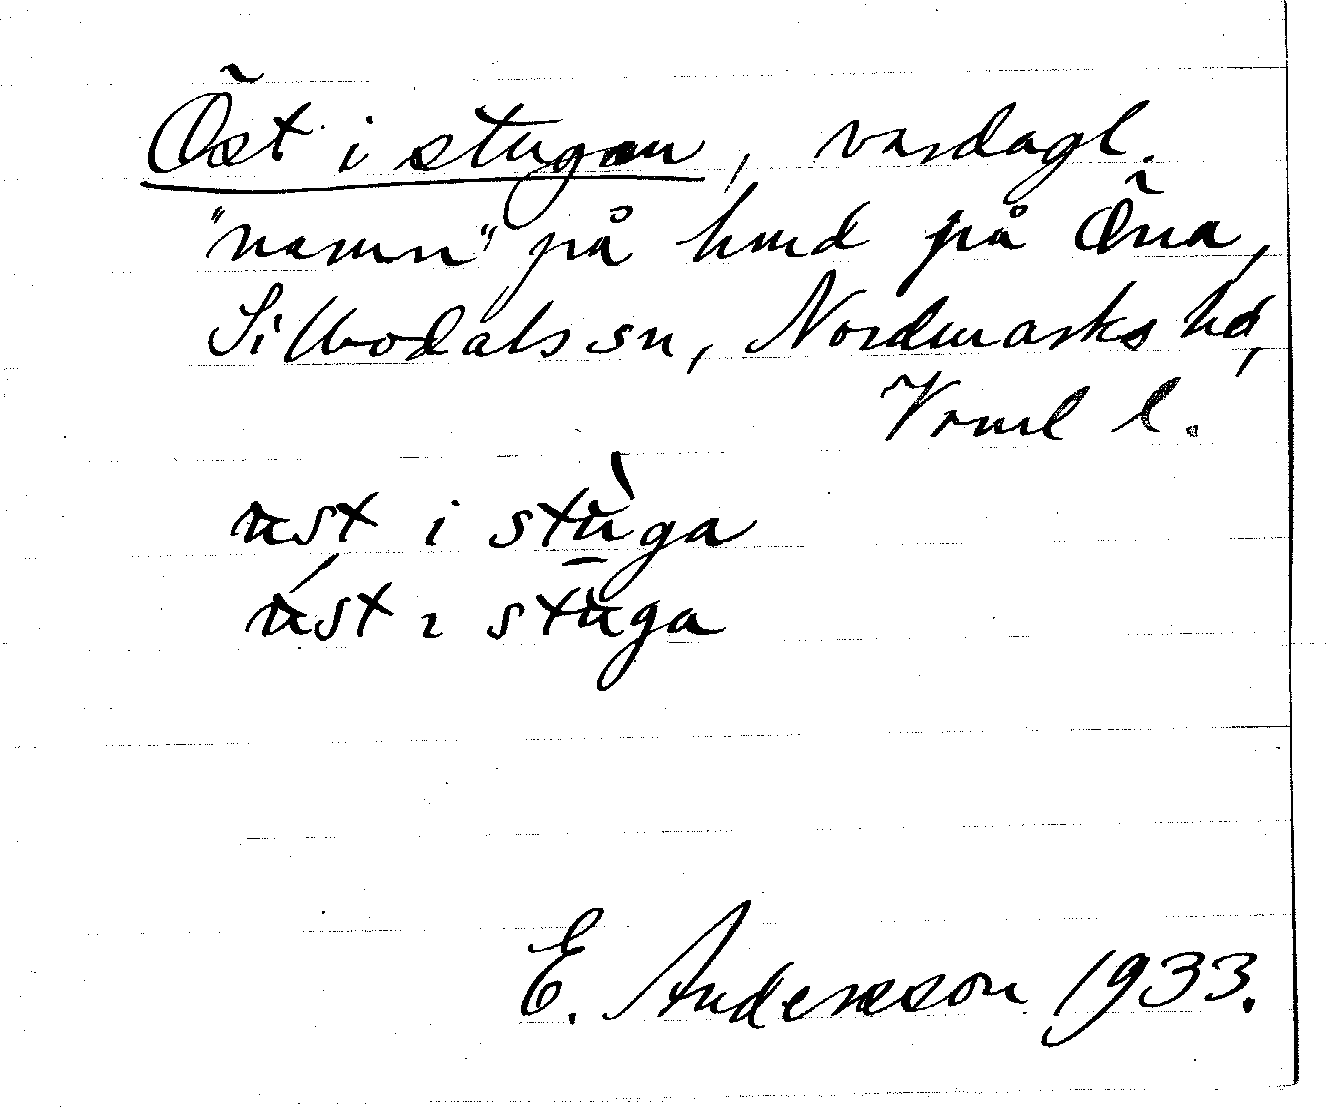 Öst i stugan, vardagl.
"namn" på hmd på Öna,
Silbodals sn, Nordmarks hd,
Vrml l.
ust i stùga
úst ı stuga
E. Andersson 1933.